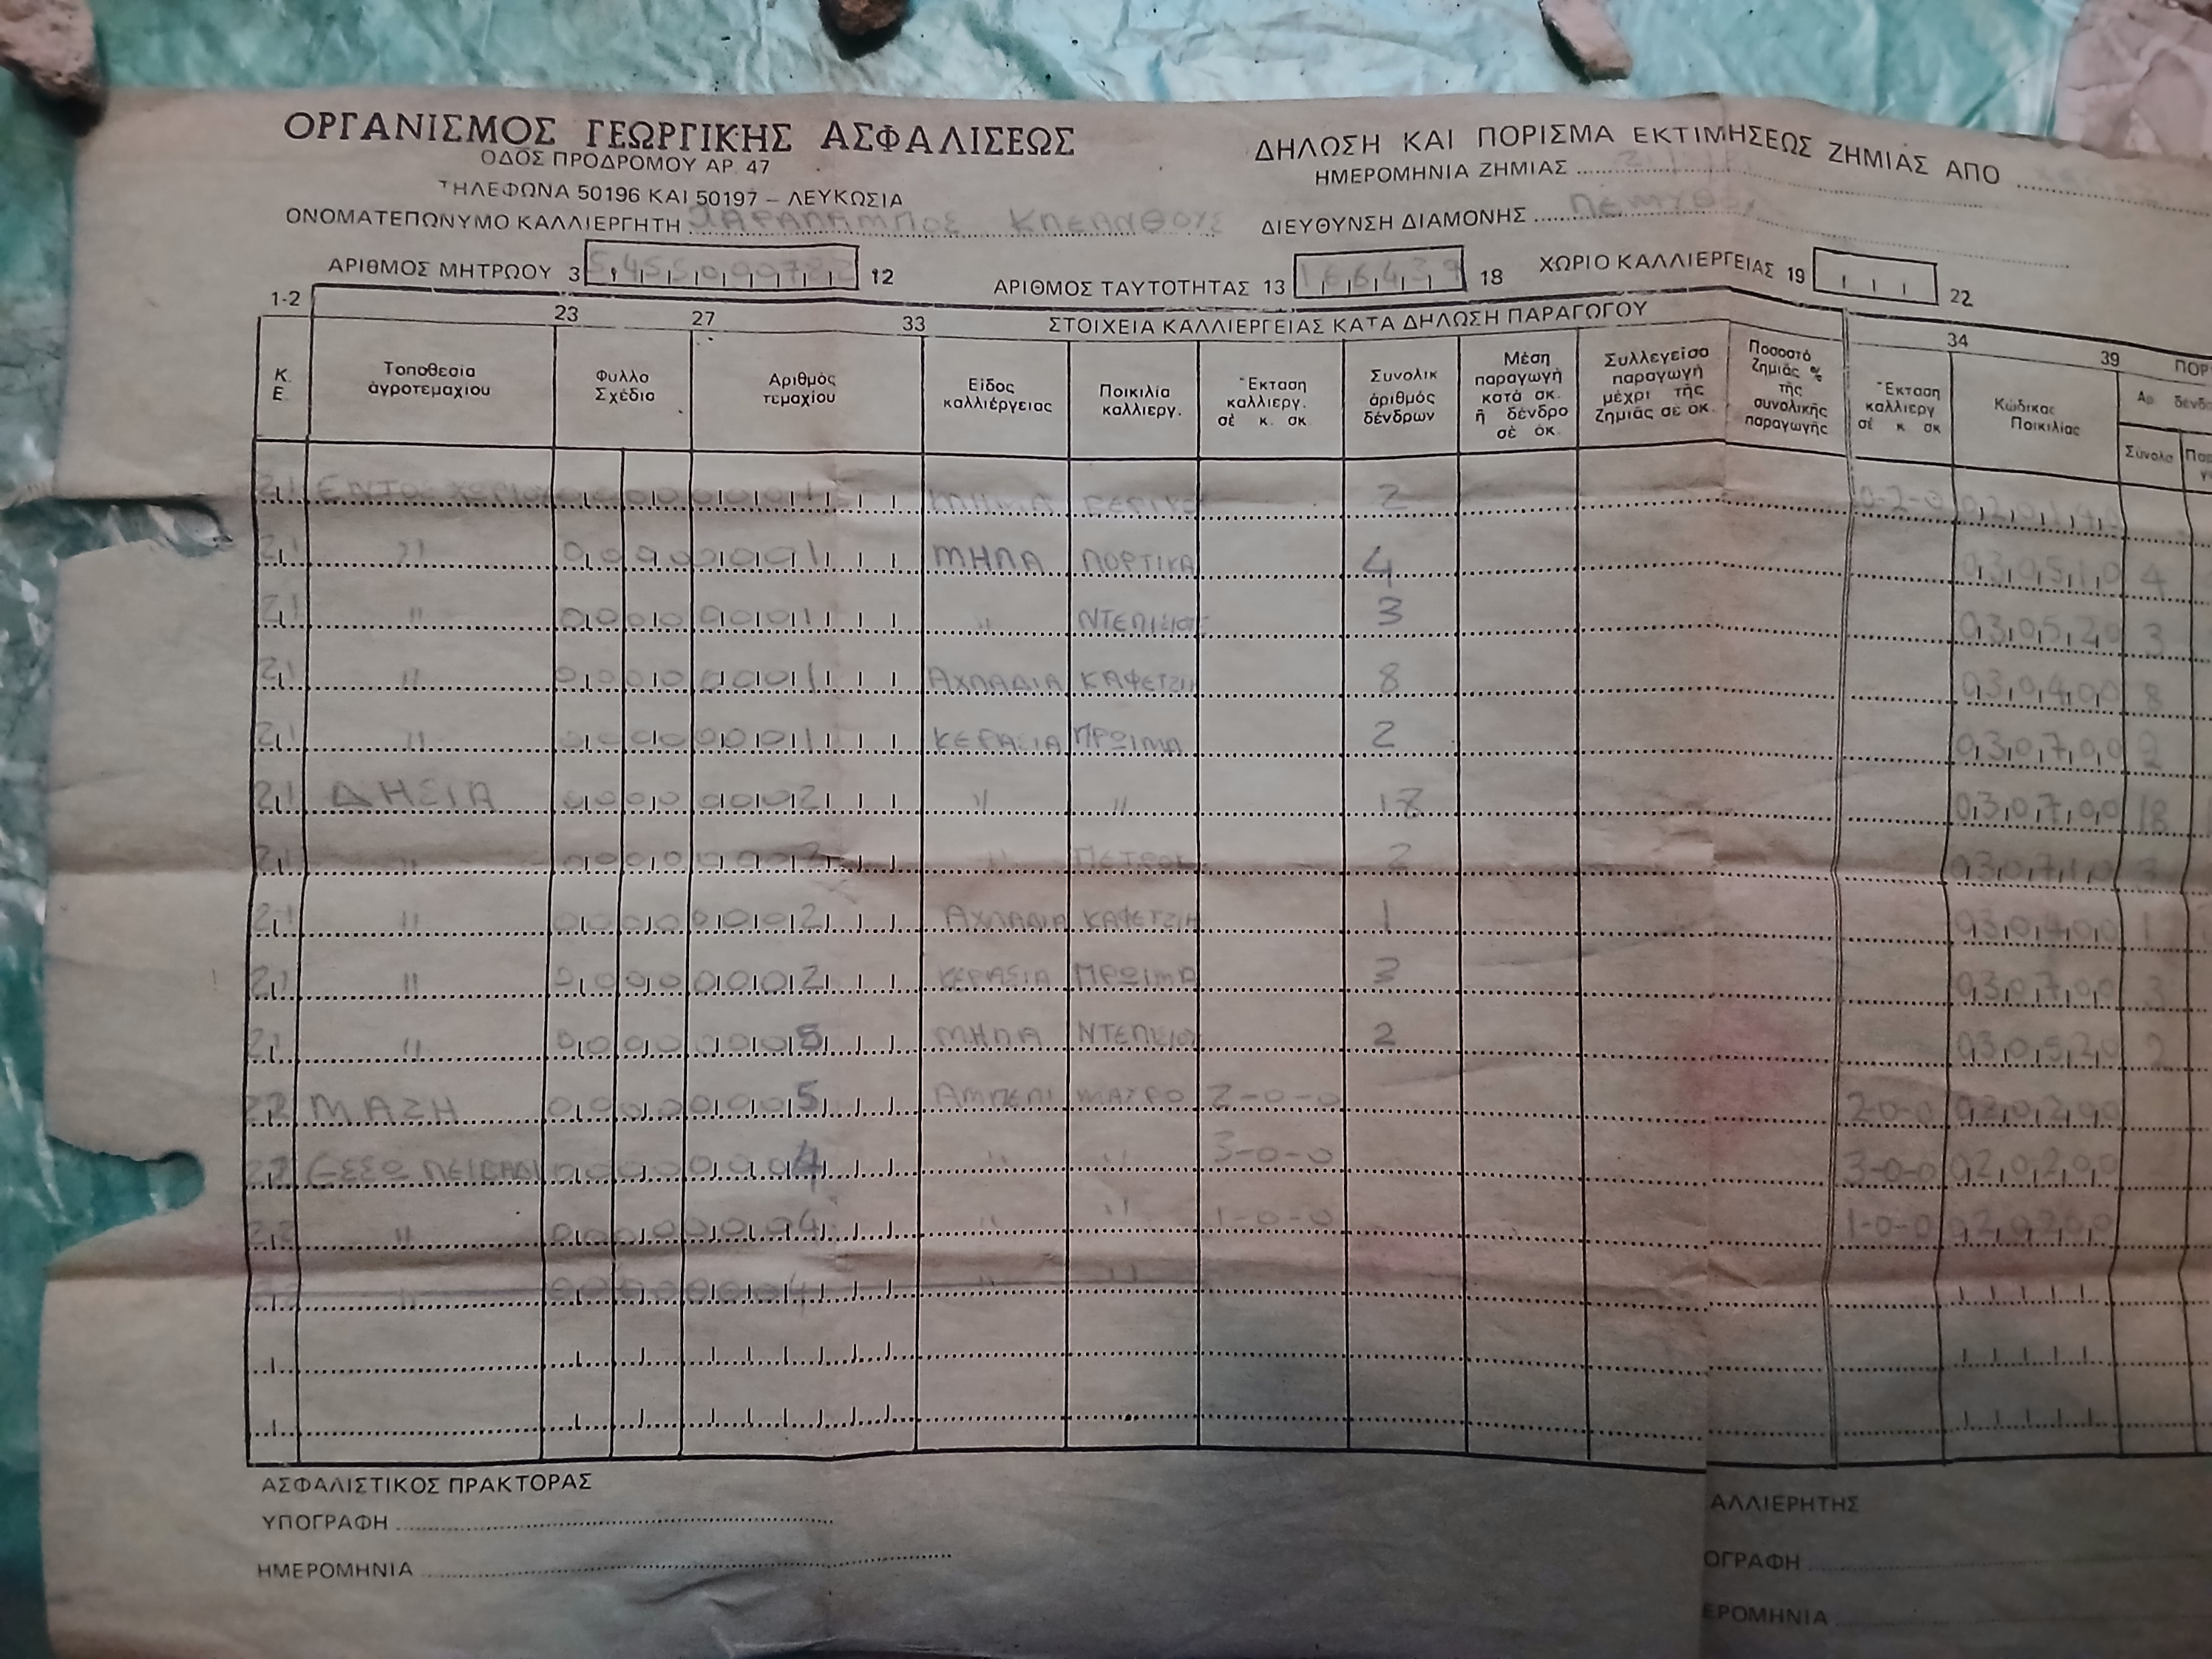 ΟΡΓΑΝΙΣΜΟΣ ΓΕΩΡΓΙΚΗΣ ΑΣΦΑΛΙΣΕΩΣ
ΟΔΟΣ ΠΡΟΔΡΟΜΟΥ ΑΡ. 47
ΤΗΛΕΦΩΝΑ 50196 ΚΑΙ 50197 – ΛΕΥΚΩΣΙΑ
ΔΗΛΩΣΗ ΚΑΙ ΠΟΡΙΣΜΑ ΕΚΤΙΜΗΣΕΩΣ ΖΗΜΙΑΣ ΑΠΟ
ΗΜΕΡΟΜΗΝΙΑ ΖΗΜΙΑΣ
ΟΝΟΜΑΤΕΠΩΝΥΜΟ ΚΑΛΛΙΕΡΓΗΤΗ ΧΑΡΑΛΑΜΠΟΣ ΚΛΕΑΝΘΟΥΣ ΔΙΕΥΘΥΝΣΗ ΔΙΑΜΟΝΗΣ
ΑΡΙΘΜΟΣ ΜΗΤΡΩΟΥ 3 12 ΑΡΙΘΜΟΣ ΤΑΥΤΟΤΗΤΑΣ 13 166439 18 ΧΩΡΙΟ ΚΑΛΛΙΕΡΓΕΙΑΣ 19 22
1-2 23 27 33 ΣΤΟΙΧΕΙΑ ΚΑΛΛΙΕΡΓΕΙΑΣ ΚΑΤΑ ΔΗΛΩΣΗ ΠΑΡΑΓΩΓΟΥ 34 39 ΠΟΡ
Κ. Ε.
Τοποθεσία ἀγροτεμαχίου
Φυλλο Σχέδιο
Αριθμός τεμαχίου
Εἶδος καλλιέργειας
Ποικιλία καλλιεργ.
Ἔκταση καλλιεργ. σὲ κ. σκ
Συνολικ ἀριθμός δένδρων
Μέση παραγωγή κατά σκ. ἤ δένδρο σὲ ὀκ.
Συλλεγεῖσα παραγωγή μέχρι τῆς ζημιᾶς σὲ οκ.
Ποσοστό ζημιᾶς % τῆς συνολικῆς παραγωγῆς
Ἔκταση καλλιεργ σὲ κ σκ
Κώδικας Ποικιλίας
Αρ δενδ
Σύνολο
21 ΕΝΤΟΣ ΧΩΡΙΟΥ 0000 0001 2 0-2-0
21 " 0000 0001 ΜΗΛΑ ΠΟΡΤΙΚΑ 4 030510 4
21 " 0000 0001 " 3 030520 3
21 " 0000 0001 ΑΧΛΑΔΙΑ ΚΑΦΕΤΖΗ 8 030400 8
21 " 0000 0001 ΚΕΡΑΣΙΑ ΠΡΩΙΜΑ 2 030700 2
21 ΔΗΣΙΑ 0000 0002 " " 18 030700 18
21 " 0000 0002 " 2 030710
21 " 0000 0002 ΑΧΛΑΔΙΑ ΚΑΦΕΤΖΗ 1 030400 1
21 " 0000 0002 ΚΕΡΑΣΙΑ ΠΡΩΙΜΑ 3 030700 3
21 " 0000 ΜΗΛΑ 2 030520 2
22 ΜΑΖΗ 0000 0005 ΑΜΠΕΛΙ ΜΑΥΡΟ 2-0-0 2-0-0 020200
22 0000 0004 " " 3-0-0 3-0-0 020200
22 " 0000 0004 " " 1-0-0 1-0-0 020200
" 0000 0004 " "
ΑΣΦΑΛΙΣΤΙΚΟΣ ΠΡΑΚΤΟΡΑΣ
ΥΠΟΓΡΑΦΗ
ΗΜΕΡΟΜΗΝΙΑ
ΑΛΛΙΕΡΗΤΗΣ
ΟΓΡΑΦΗ
ΕΡΟΜΗΝΙΑ